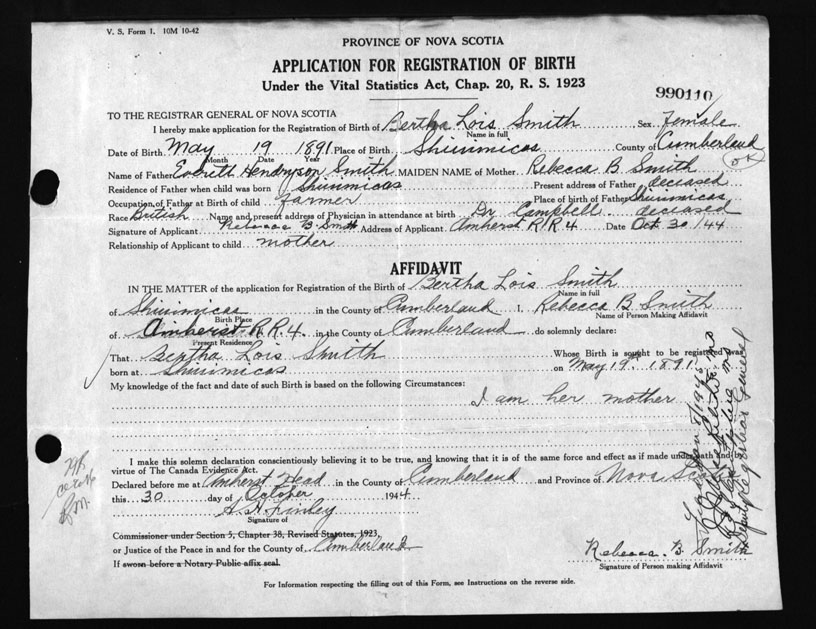 V. S. Form 1. 10M 10-42
PROVINCE OF NOVA SCOTIA
APPLICATION FOR REGISTRATION OF BIRTH
Under the Vital Statistics Act, Chap. 20, R. S. 1923
990110
TO THE REGISTRAR GENERAL OF NOVA SCOTIA
I hereby make application for the Registration of Birth of Bertha Lois Smith Sex Female
Name in full
Date of Birth May 19 1891 Place of Birth Shinimicas County of Cumberland
Month Date Year
Name of Father Everitt Hendryson Smith MAIDEN NAME of Mother Rebecca B. Smith
Residence of Father when child was born Shinimicas Present address of Father deceased
Occupation of Father at Birth of child farmer Place of birth of Father Shinimicas
Race British Name and present address of Physician in attendance at birth Dr Campbell deceased
Signature of Applicant Rebecca B. Smith Address of Applicant Amherst R R 4 Date Oct 30/44
Relationship of Applicant to child mother
AFFIDAVIT
IN THE MATTER of the application for Registration of the Birth of Bertha Lois Smith
Name in full
of Shinimicas in the County of Cumberland I, Rebecca B Smith
Birth Place Name of Person Making Affidavit
of Amherst R.R.4. in the County of Cumberland do solemnly declare:
Present Residence
That Bertha Lois Smith Whose Birth is sought to be registered was
born at Shinimicas on May 19. 1891
My knowledge of the fact and date of such Birth is based on the following Circumstances:
I am her mother
I make this solemn declaration conscientiously believing it to be true, and knowing that it is of the same force and effect as if made under oath and by
virtue of The Canada Evidence Act.
Declared before me at Amherst Head in the County of Cumberland and Province of Nova
this 30 day of October 1944
A. H. Finley
Signature of
Commissioner under Section 5, Chapter 38, Revised Statutes, 1923,
or Justice of the Peace in and for the County of Cumberland
If sworn before a Notary Public affix seal.
Rebecca. B. Smith
Signature of Person making Affidavit
For Information respecting the filling out of this Form, see Instructions on the reverse side.
Deputy Registrar General